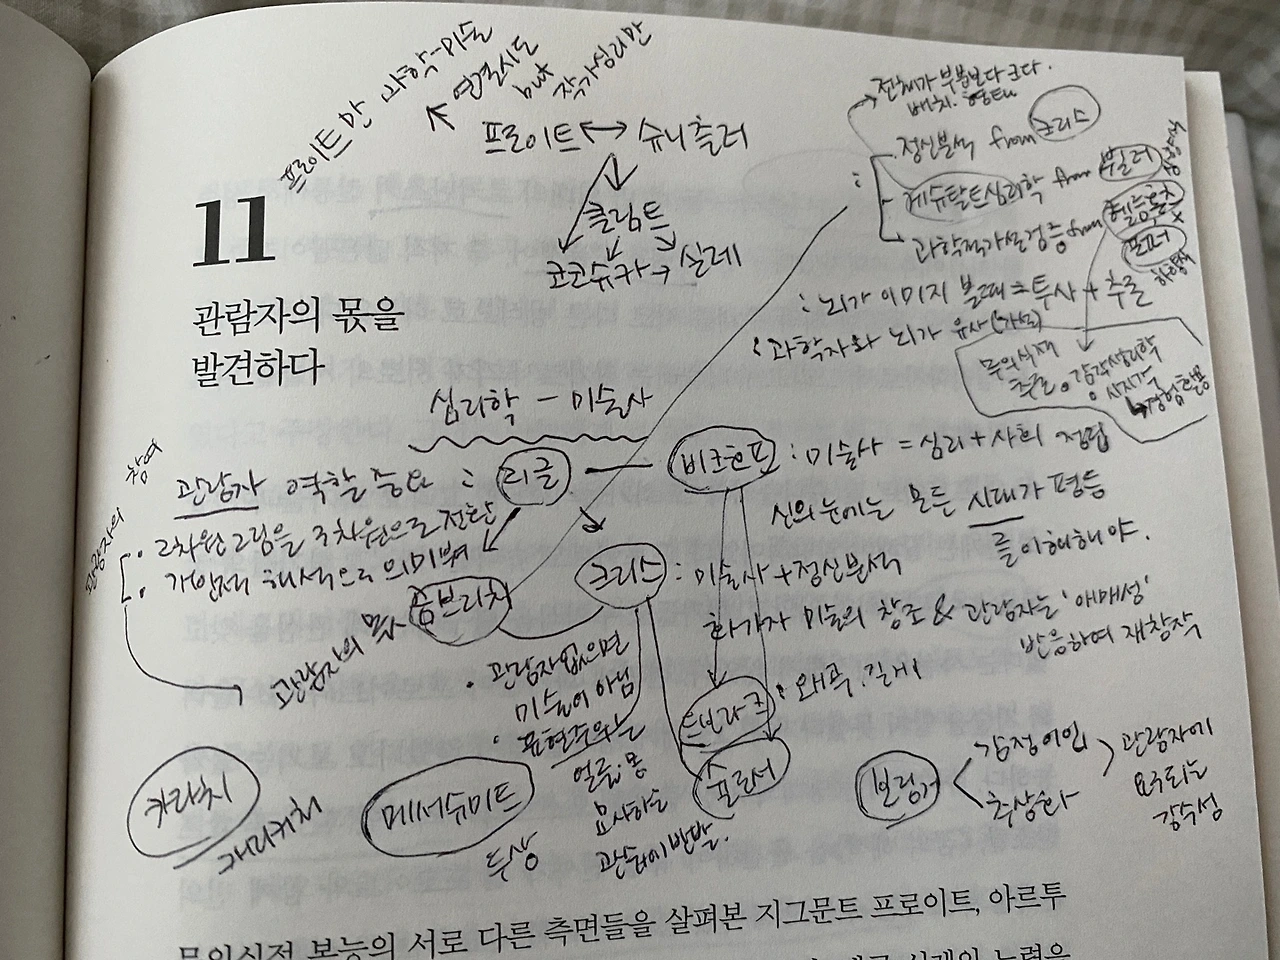 프로이트만 과학-미술
연결시도
but
작가심리만
프로이트 ↔ 슈니츨러
클림트
코코슈카 → 실레
11
관람자의 몫을
발견하다
전체가 부분보다 크다.
배치.
정신분석 from 크리스
게슈탈트심리학 from 뷜러
과학적가설검증 from 헬름홀츠
: 뇌가 이미지 볼때 = 투사 + 추론
과학자와 뇌가 유사(가설)
무의식적
추론
감각생리학
상향식
하향식
심리학 - 미술사
관람자의 참여
관람자 역할 중요 : 리글
비크호프 : 미술사 = 심리+사회 접합
: 2차원그림을 3차원으로 전환
: 개인적 해석으로 의미부여
신의 눈에는 모든 시대가 평등
를 이해해야.
크리스 : 미술사+정신분석
곰브리치
관람자의 몫
화가가 미술의 창조 & 관람자는 '애매성'
반응하여 재창작
• 관람자없으면
미술이 아님
• 표현주의는
얼굴·몸
묘사하는
관습에 반발.
드보라크 : 왜곡·길게
슐로서
카라치
캐리커처
메서슈미트
두상
보링거
감정이입
추상화
관람자에
요구되는
감수성
무의식적 본능의 서로 다른 측면들을 살펴본 지그문트 프로이트, 아르투